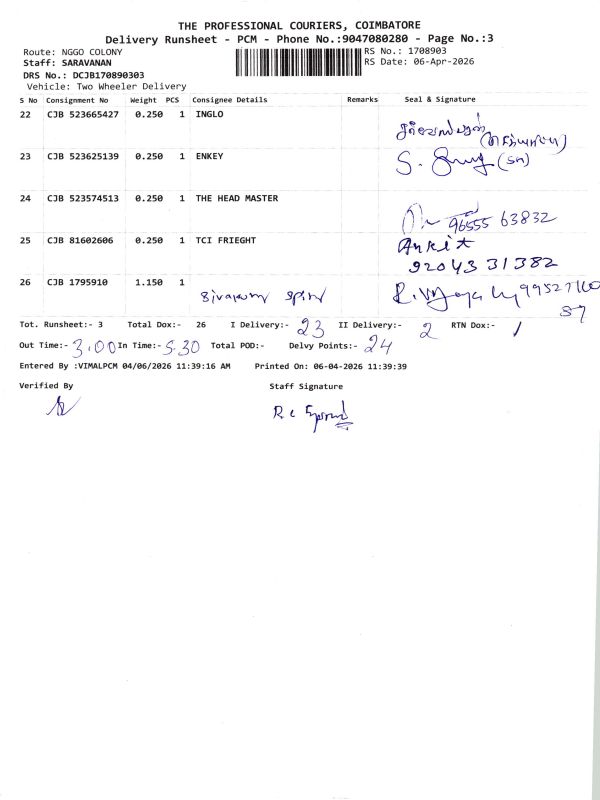 THE PROFESSIONAL COURIERS, COIMBATORE
Delivery Runsheet - PCM - Phone No.:9047080280 - Page No.:3
Route: NGGO COLONY RS No.: 1708903
Staff: SARAVANAN RS Date: 06-Apr-2026
DRS No.: DCJB170890303
Vehicle: Two Wheeler Delivery
S No Consignment No Weight PCS Consignee Details Remarks Seal & Signature
22 CJB 523665427 0.250 1 INGLO
23 CJB 523625139 0.250 1 ENKEY
24 CJB 523574513 0.250 1 THE HEAD MASTER
96555 63832
25 CJB 81602606 0.250 1 TCI FRIEGHT Ankit
92043 31382
26 CJB 1795910 1.150 1
Tot. Runsheet:- 3 Total Dox:- 26 I Delivery:- 23 II Delivery:- 2 RTN Dox:- 1
Out Time:- 3.00 In Time:- 5.30 Total POD:- Delvy Points:- 24
Entered By :VIMALPCM 04/06/2026 11:39:16 AM Printed On: 06-04-2026 11:39:39
Verified By Staff Signature